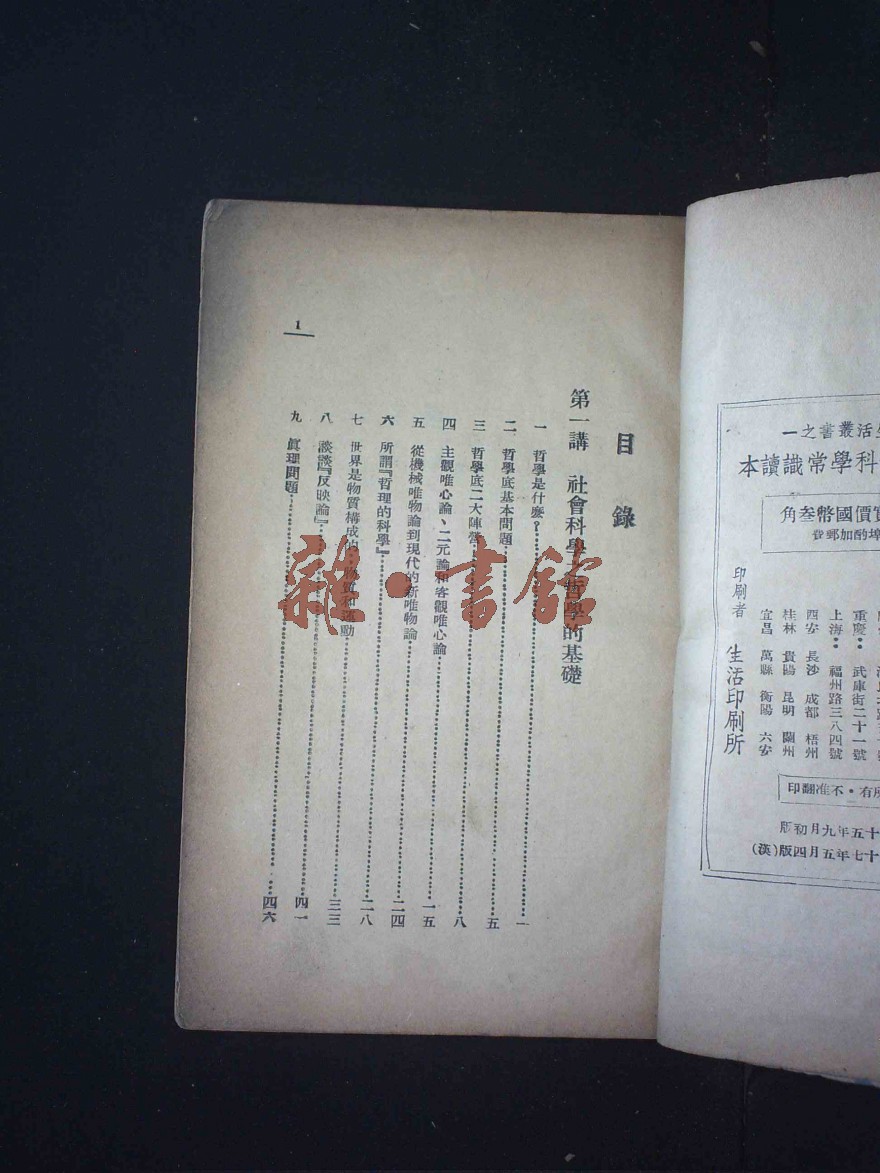 目錄
第一講 社會科學之哲學的基礎
一 哲學是什麼?……一
二 哲學底基本問題……五
三 哲學底二大陣營……八
四 主觀唯心論、二元論和客觀唯心論……一五
五 從機械唯物論到現代的新唯物論……二四
六 所謂『哲理的科學』……二八
七 世界是物質構成的・物質和運動……三三
八 談談『反映論』……四一
九 眞理問題……四六
1
雜・書館
活叢書之一
科學常識讀本
價國幣叁角
埠酌加郵費
重慶:武庫街二十一號
上海:福州路三八四號
西安 長沙 成都 梧州
桂林 貴陽 昆明 蘭州
宜昌 萬縣 衡陽 六安
印刷者 生活印刷所
有・不准翻印
十五年九月初版
十七年五月四版(漢)